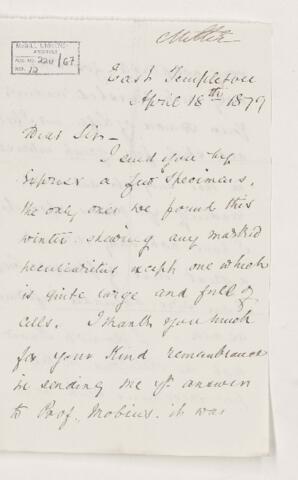 McGILL UNIVERSITY
ARCHIVES
ACC. NO. 2211/67
REF. 12
East Templeton
April 18th 1879
Dear Sir—
I send you by
Express a few specimens,
the only ones we found this
winter showing any marked
peculiarities except one which
is quite large and full of
cells. I thank you much
for your Kind remembrance
in sending me yr answer
to Prof. Mobius. it was